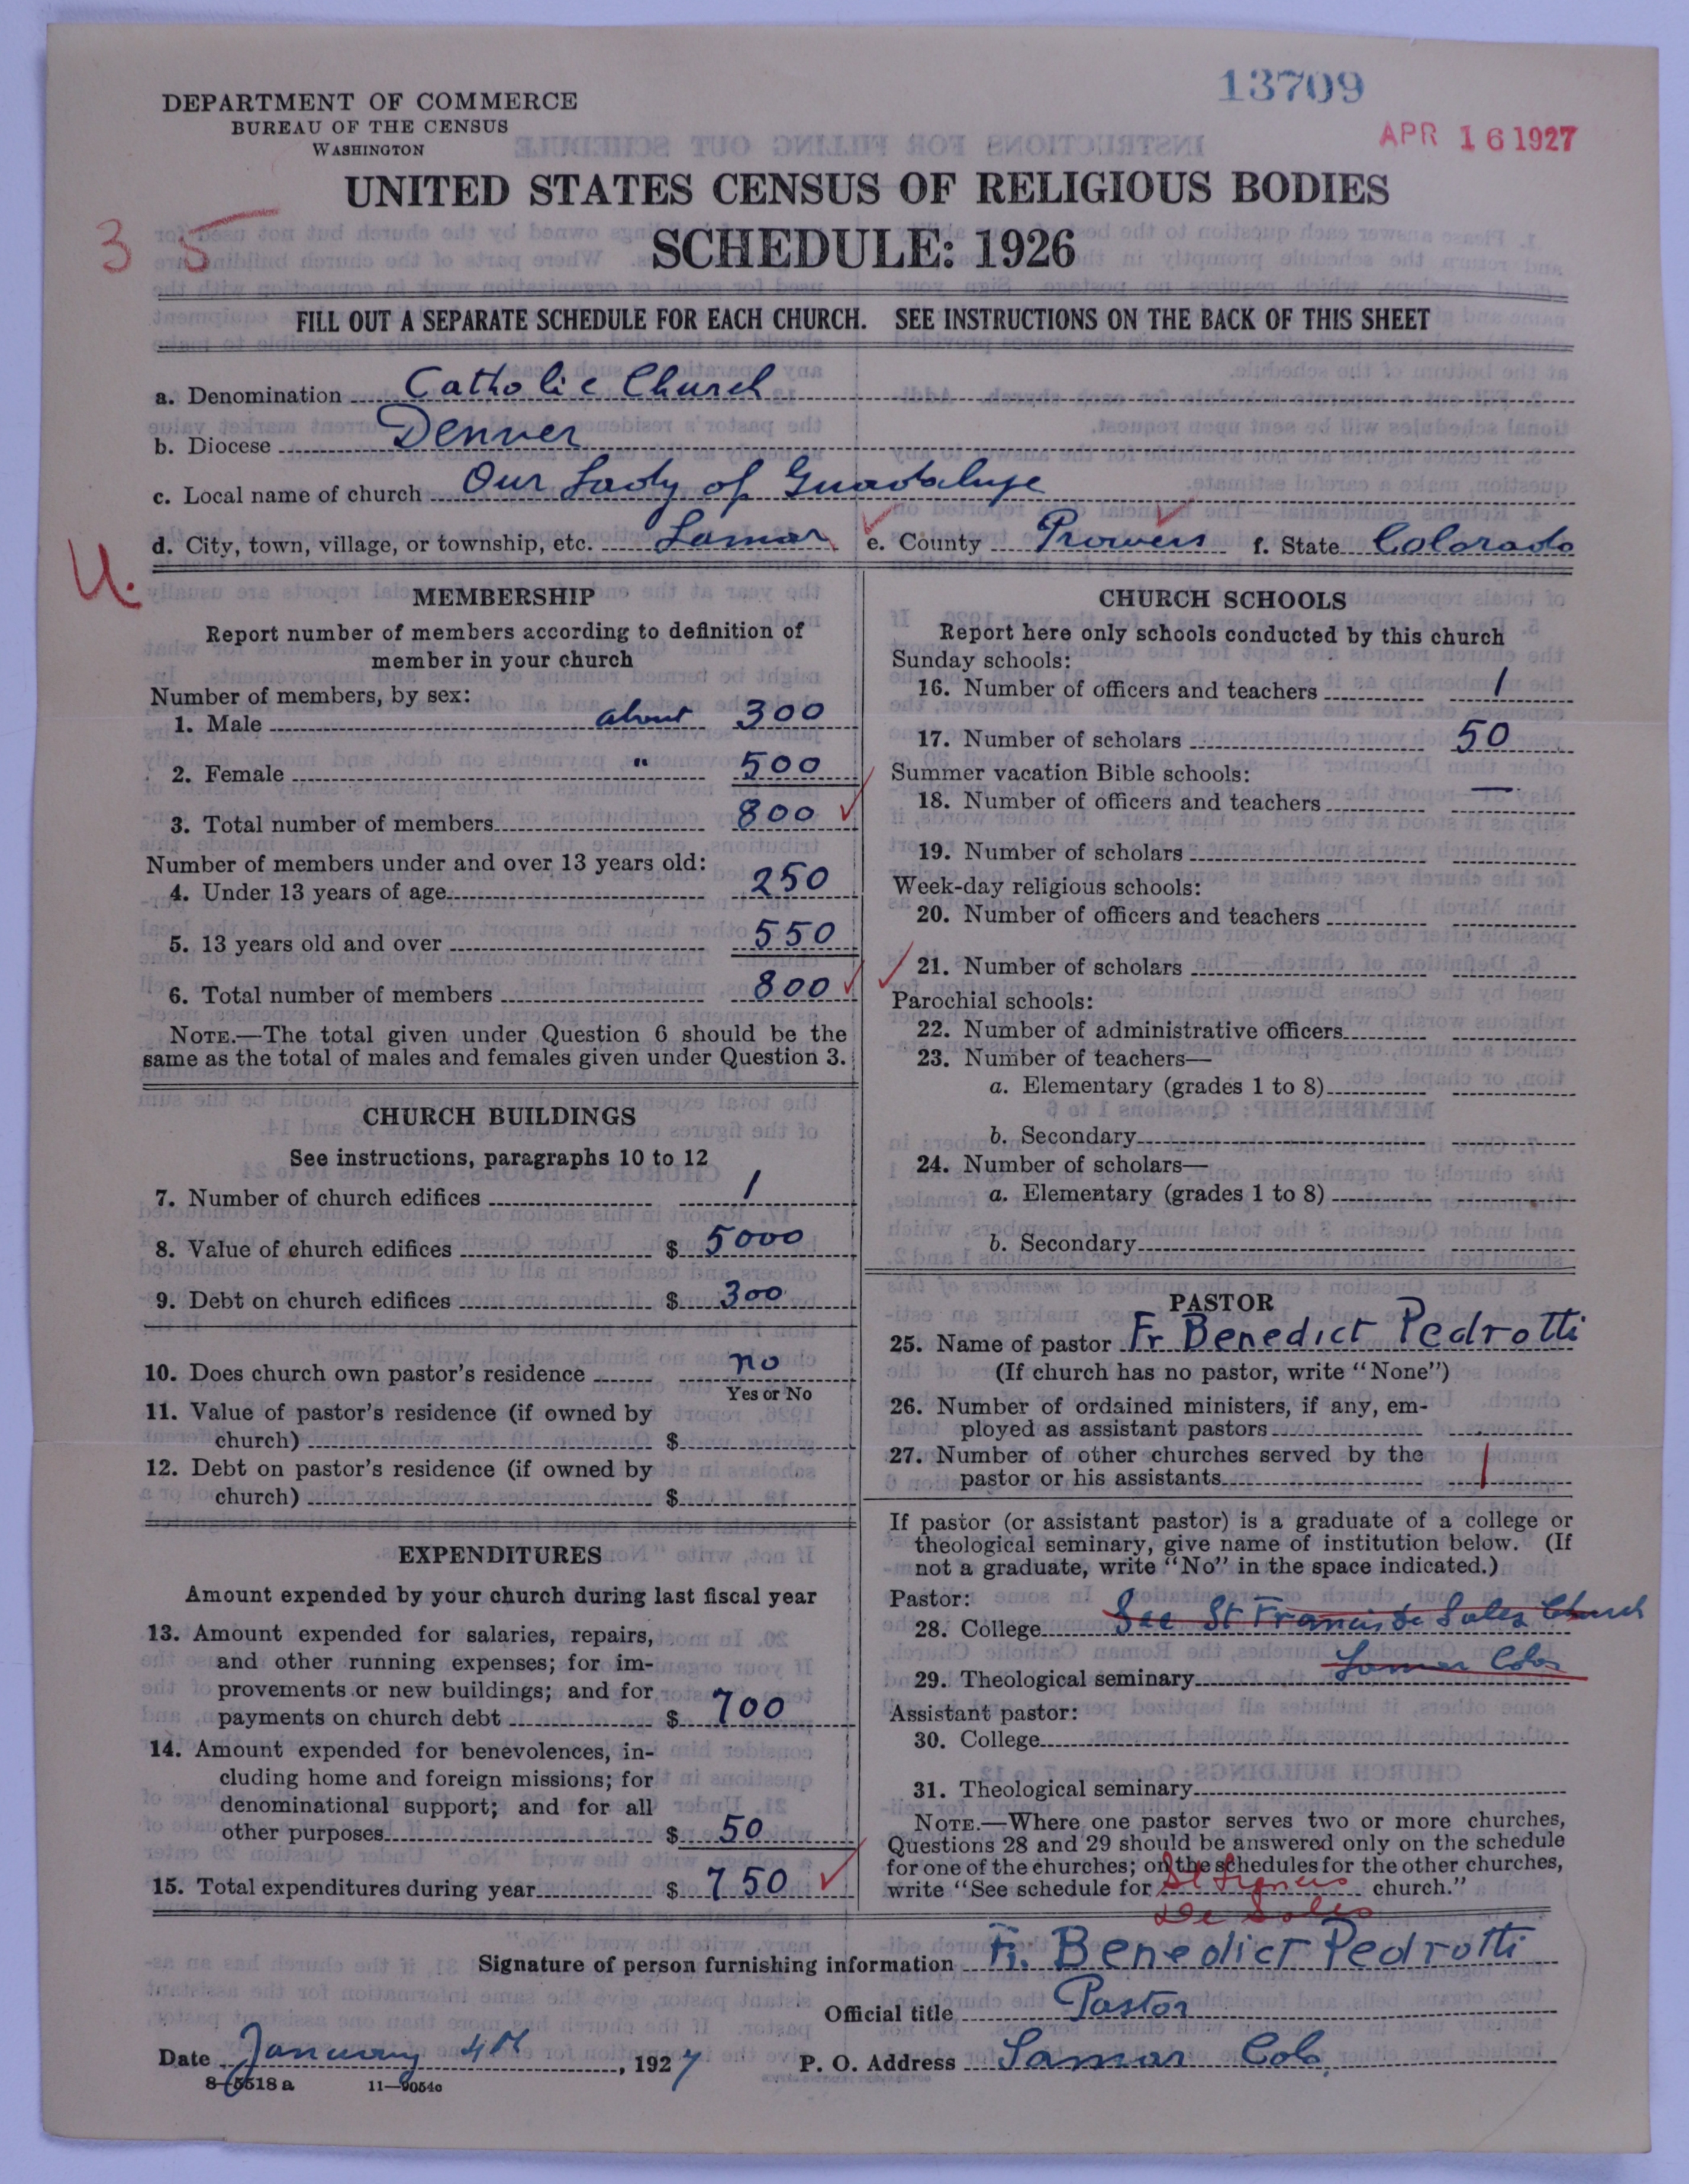 13709
DEPARTMENT OF COMMERCE
BUREAU OF THE CENSUS
WASHINGTON
APR 16 1927
UNITED STATES CENSUS OF RELIGIOUS BODIES
3 5
SCHEDULE: 1926
FILL OUT A SEPARATE SCHEDULE FOR EACH CHURCH. SEE INSTRUCTIONS ON THE BACK OF THIS SHEET
a. Denomination Catholic Church
b. Diocese Denver
c. Local name of church Our Lady of Guadalupe
d. City, town, village, or township, etc. Lamar e. County Prowers f. State Colorado
U.
MEMBERSHIP
Report number of members according to definition of
member in your church
Number of members, by sex:
1. Male about 300
2. Female " 500
3. Total number of members 800
Number of members under and over 13 years old:
4. Under 13 years of age 250
5. 13 years old and over 550
6. Total number of members 800
NOTE.—The total given under Question 6 should be the
same as the total of males and females given under Question 3.
CHURCH BUILDINGS
See instructions, paragraphs 10 to 12
7. Number of church edifices 1
8. Value of church edifices $ 5000
9. Debt on church edifices $ 300
10. Does church own pastor's residence no
Yes or No
11. Value of pastor's residence (if owned by
church) $
12. Debt on pastor's residence (if owned by
church) $
EXPENDITURES
Amount expended by your church during last fiscal year
13. Amount expended for salaries, repairs,
and other running expenses; for im-
provements or new buildings; and for
payments on church debt $ 700
14. Amount expended for benevolences, in-
cluding home and foreign missions; for
denominational support; and for all
other purposes $ 50
15. Total expenditures during year $ 750
CHURCH SCHOOLS
Report here only schools conducted by this church
Sunday schools:
16. Number of officers and teachers 1
17. Number of scholars 50
Summer vacation Bible schools:
18. Number of officers and teachers —
19. Number of scholars
Week-day religious schools:
20. Number of officers and teachers
21. Number of scholars
Parochial schools:
22. Number of administrative officers
23. Number of teachers—
a. Elementary (grades 1 to 8)
b. Secondary
24. Number of scholars—
a. Elementary (grades 1 to 8)
b. Secondary
PASTOR
25. Name of pastor Fr Benedict Pedrotti
(If church has no pastor, write "None")
26. Number of ordained ministers, if any, em-
ployed as assistant pastors
27. Number of other churches served by the
pastor or his assistants 1
If pastor (or assistant pastor) is a graduate of a college or
theological seminary, give name of institution below. (If
not a graduate, write "No" in the space indicated.)
Pastor:
28. College See St Francis de Sales Church
29. Theological seminary Lamar Colo
Assistant pastor:
30. College
31. Theological seminary
NOTE.—Where one pastor serves two or more churches,
Questions 28 and 29 should be answered only on the schedule
for one of the churches; on the schedules for the other churches,
write "See schedule for St Francis church."
De Sales
Signature of person furnishing information Fr. Benedict Pedrotti
Official title Pastor
Date January 4th, 1927 P. O. Address Lamar Colo.
8—5518 a 11—9054c